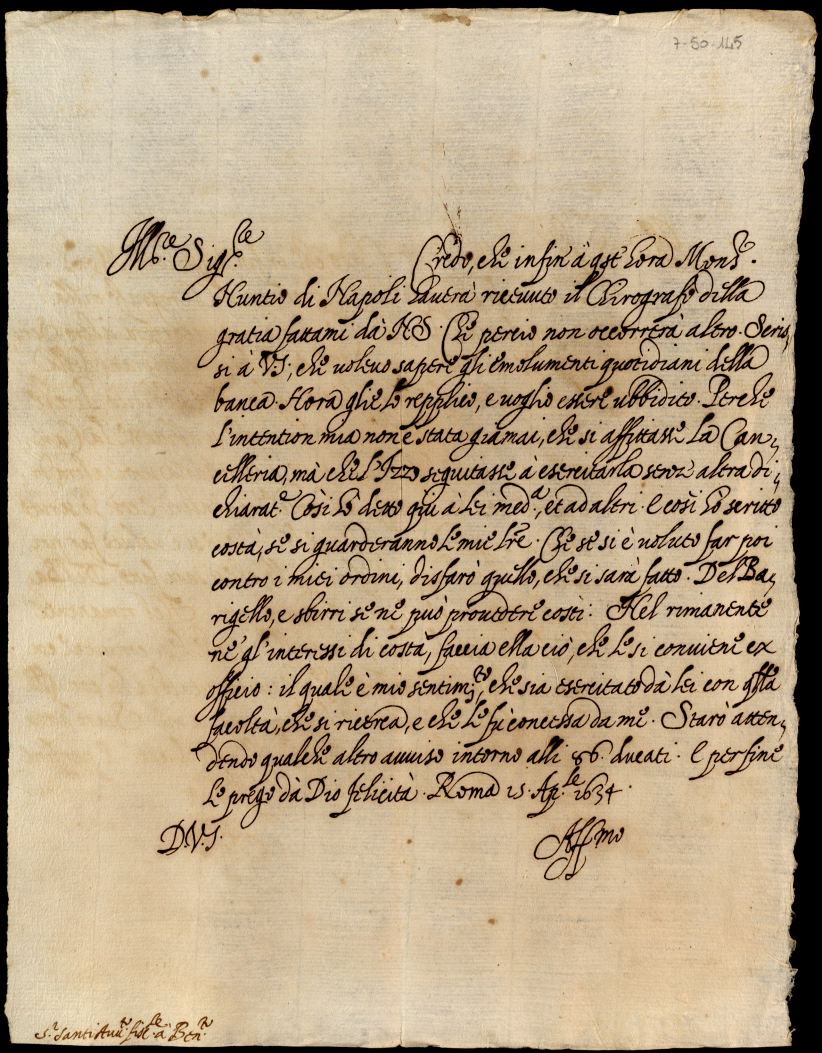 7-50-145
Ill.re Sig.re Credo, che infin' à q̃st'hora Mons.r
Nuntio di Napoli haverà ricevuto il Chirografo della
gratia fattami dà N.S. Che perciò non occorrerà altro. Scris,
si à V.S., che volevo sapere gli emolumenti quotidiani della
banca. Hora glie lo repplico, e voglio essere ubbidito. Perche
l'intention mia non è stata giamai, che si affittasse la Can,
celleria, mà che l'Izzo seguitasse à esercitarla senz'altra di,
chiarat.e Così hò detto quì à lei med.a, et ad altri. E così hò scritto
costà, se si guarderanno le mie lre. Che se si è voluto far poi
contro i miei ordini, disfarò quello, che si sarà fatto. Del Ba,
rigello, e sbirri se ne può provedere costì. Nel rimanente
ne gl'interessi di costà, faccia ella ciò, che le si conviene ex
officio: il quale è mio sentim.to, che sia esercitato dà lei con q̃lla
facoltà, che si ricerca, e che le fù concessa da me. Starò atten,
dendo qualche altro avviso intorno alli 86. ducati. E per fine
le prego dà Dio felicità. Roma 15. Ap.le 1634.
D.V.S. Aff.mo
S.r Santi Avv.to fisc.le à Ben.to